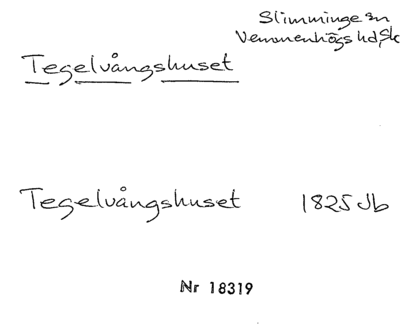 Slimminge sn
Vemmenhögs hd, Sk
Tegelvångshuset
Tegelvångshuset 1825 Jb
Nr 18319